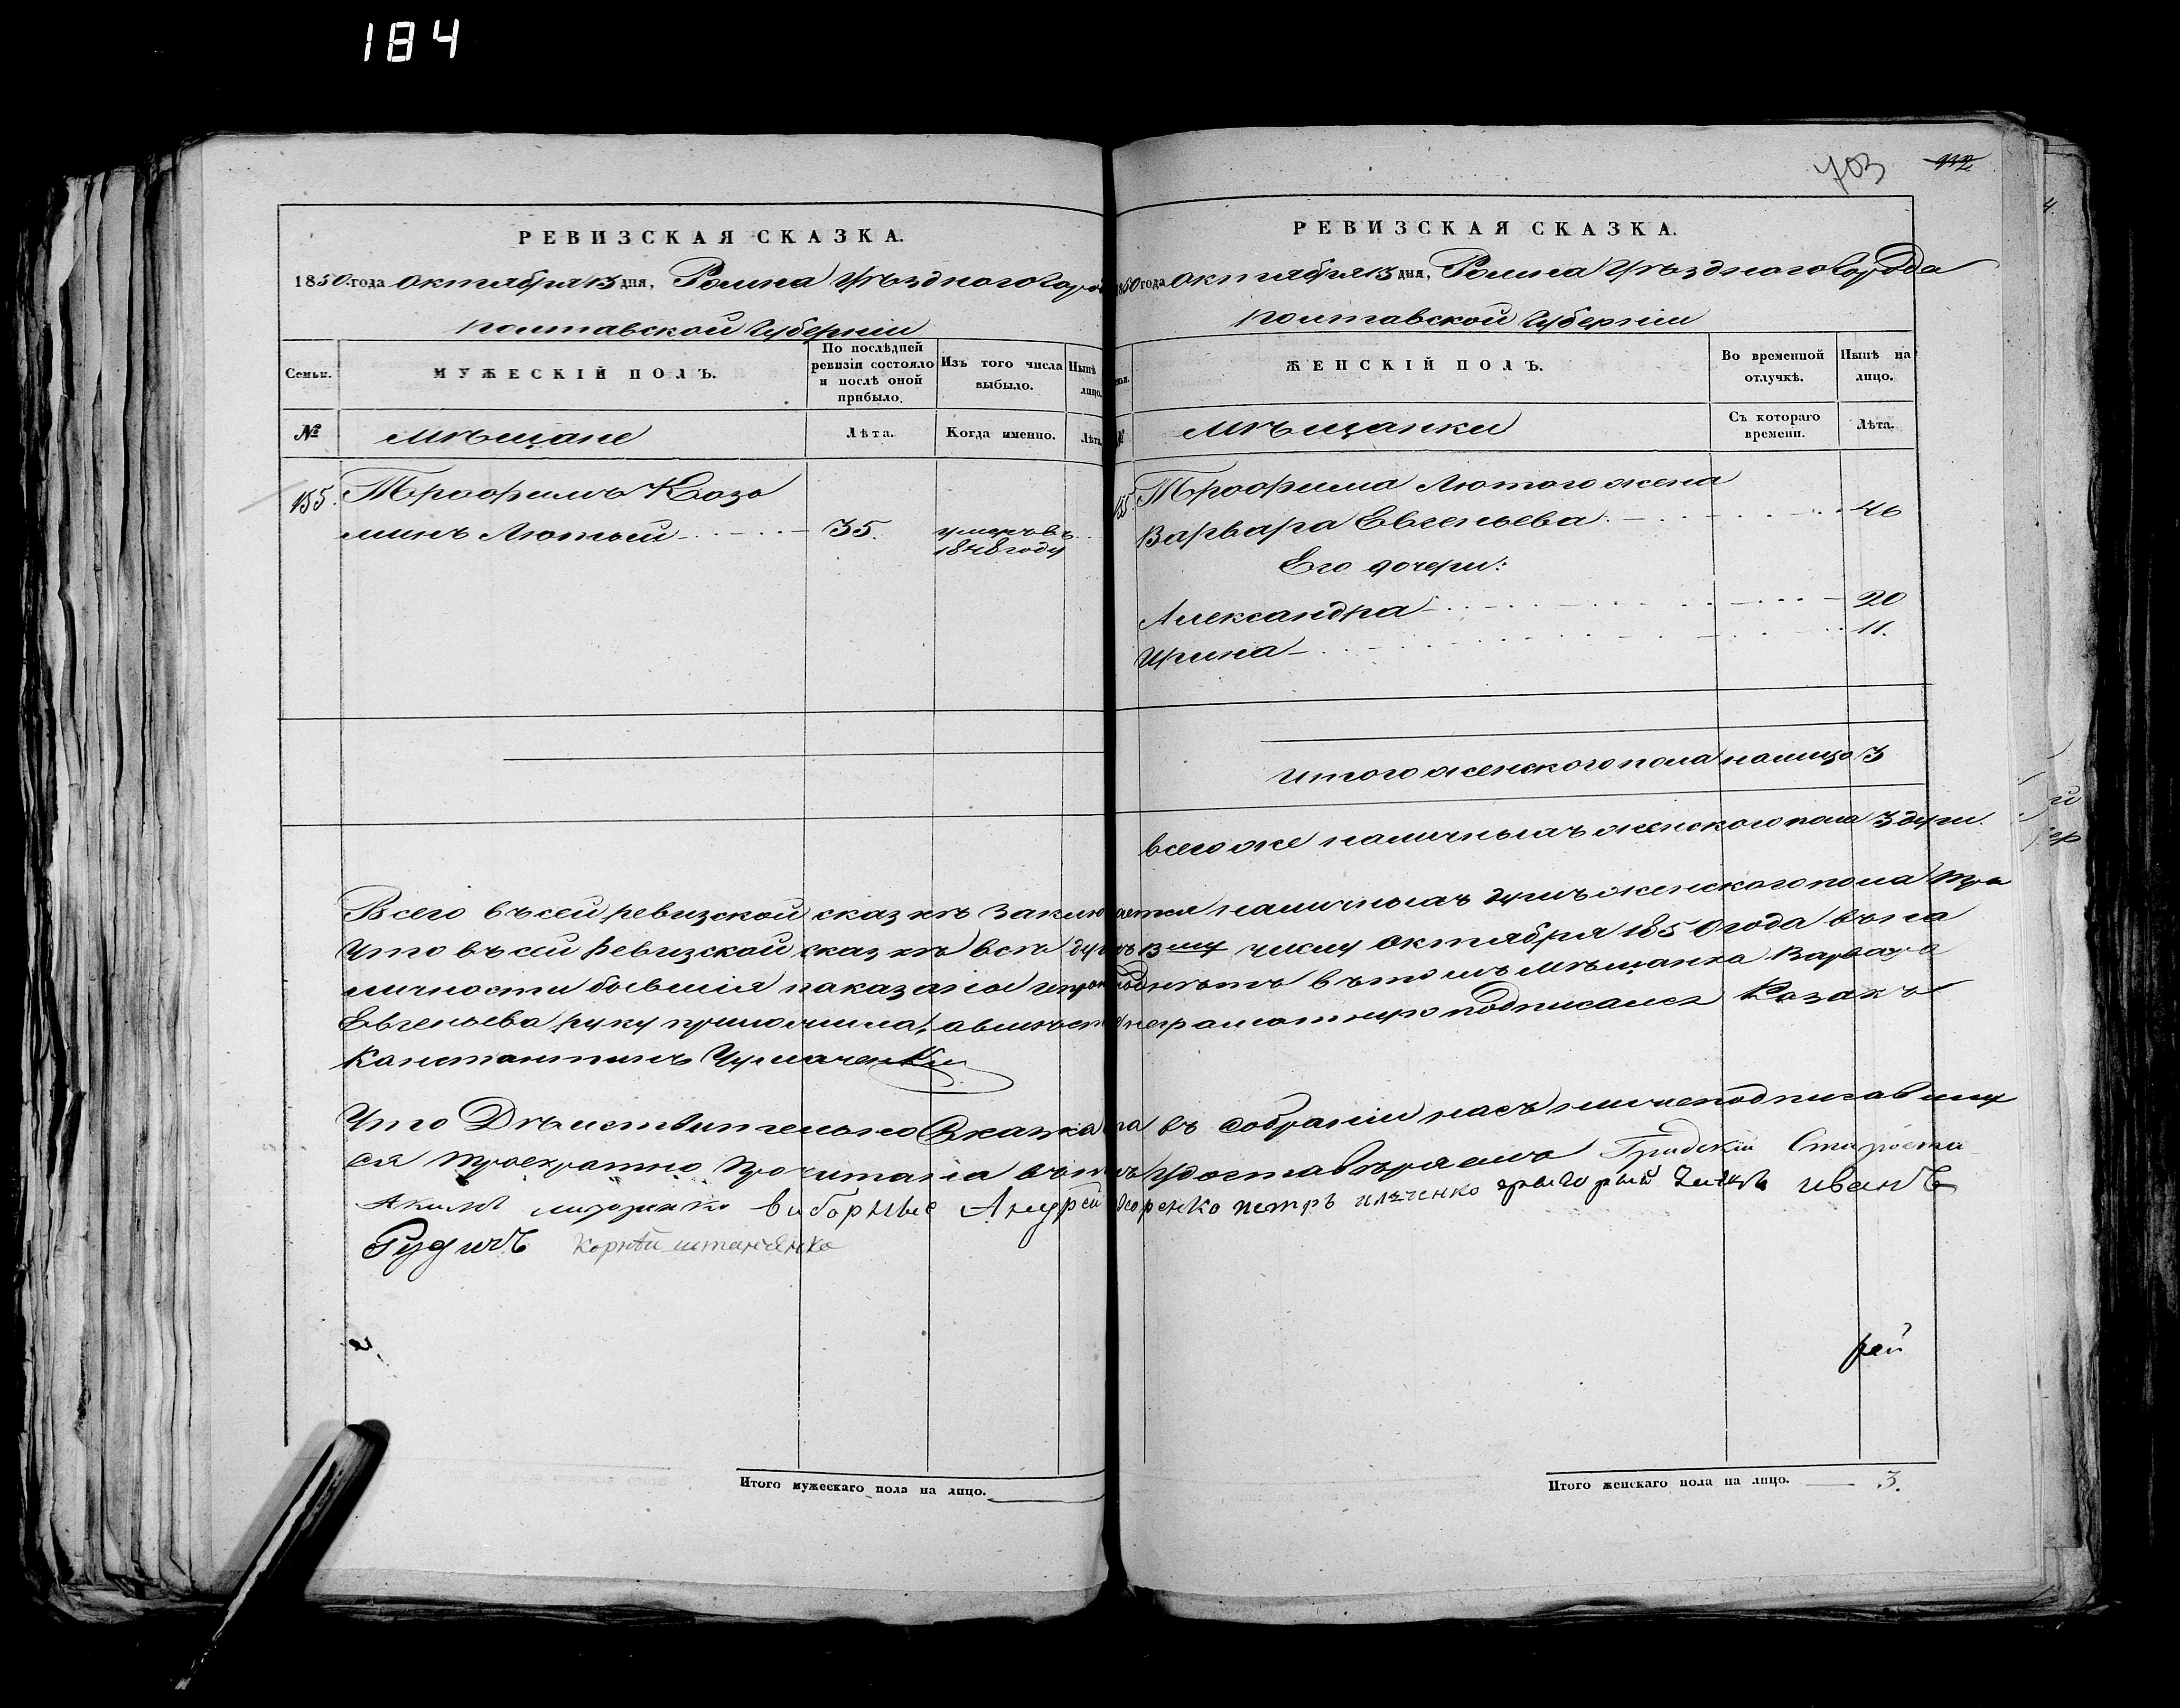 184
703 112
РЕВИЗСКАЯ СКАЗКА.
1850 года Октября 13 дня, Ромна Уѣзднаго Горо
Полтавской Губерніи
Семьи. МУЖЕСКІЙ ПОЛЪ. По послѣдней ревизіи состояло и послѣ оной прибыло. Изъ того числа выбыло. Нынѣ лицо.
№ Мѣщане Лѣта. Когда именно. Лѣта.
155. Трофимъ Козо
минъ Лютый 35. умеръ въ
1848 году
Итого мужескаго пола на лицо.
РЕВИЗСКАЯ СКАЗКА.
1850 года Октября 13 дня, Ромна Уѣзднаго Города
Полтавской Губерніи
ЖЕНСКІЙ ПОЛЪ. Во временной отлучкѣ. Нынѣ на лицо.
№ Мѣщанки Съ котораго времени. Лѣта.
155 Трофима Лютого жена
Варвара Евгеньева 46
Его дочери:
Александра 20
Ирина 11.
Итого женского пола налицо 3
всего же наличныхъ женского пола 3 души.
Всего въ сей ревизской сказкѣ заключается наличныхъ душъ женского пола три
Что въ сей Ревизской сказкѣ всѣ душъ 13му числу Октября 1850 года въ на
личности бывшія показаны и въ томъ мѣщанка Варвара
Евгеньева руку приложила, а вмѣсто неграмотную подписался Казакъ
Константинъ Чумаченко
Что Дѣйствительно Зказка въ собраніи насъ нижеподписавших
ся троекратно прочитана въ томъ удостовѣряемъ Градскій Староста
Акимъ виборные Андрей петръ илѣченко иванъ
Рудичъ Корнѣй
рей
Итого женскаго пола на лицо. 3.